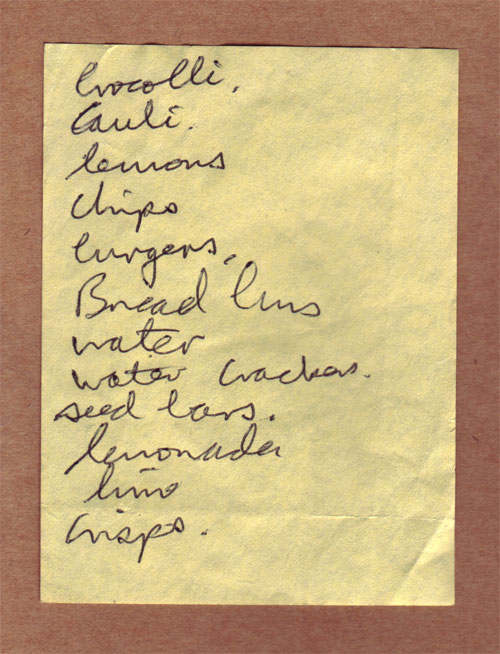 brocolli.
Cauli.
lemons
Chips
burgers.
Bread buns
water
water crackers.
seed bars.
lemonade
limo
crisps.